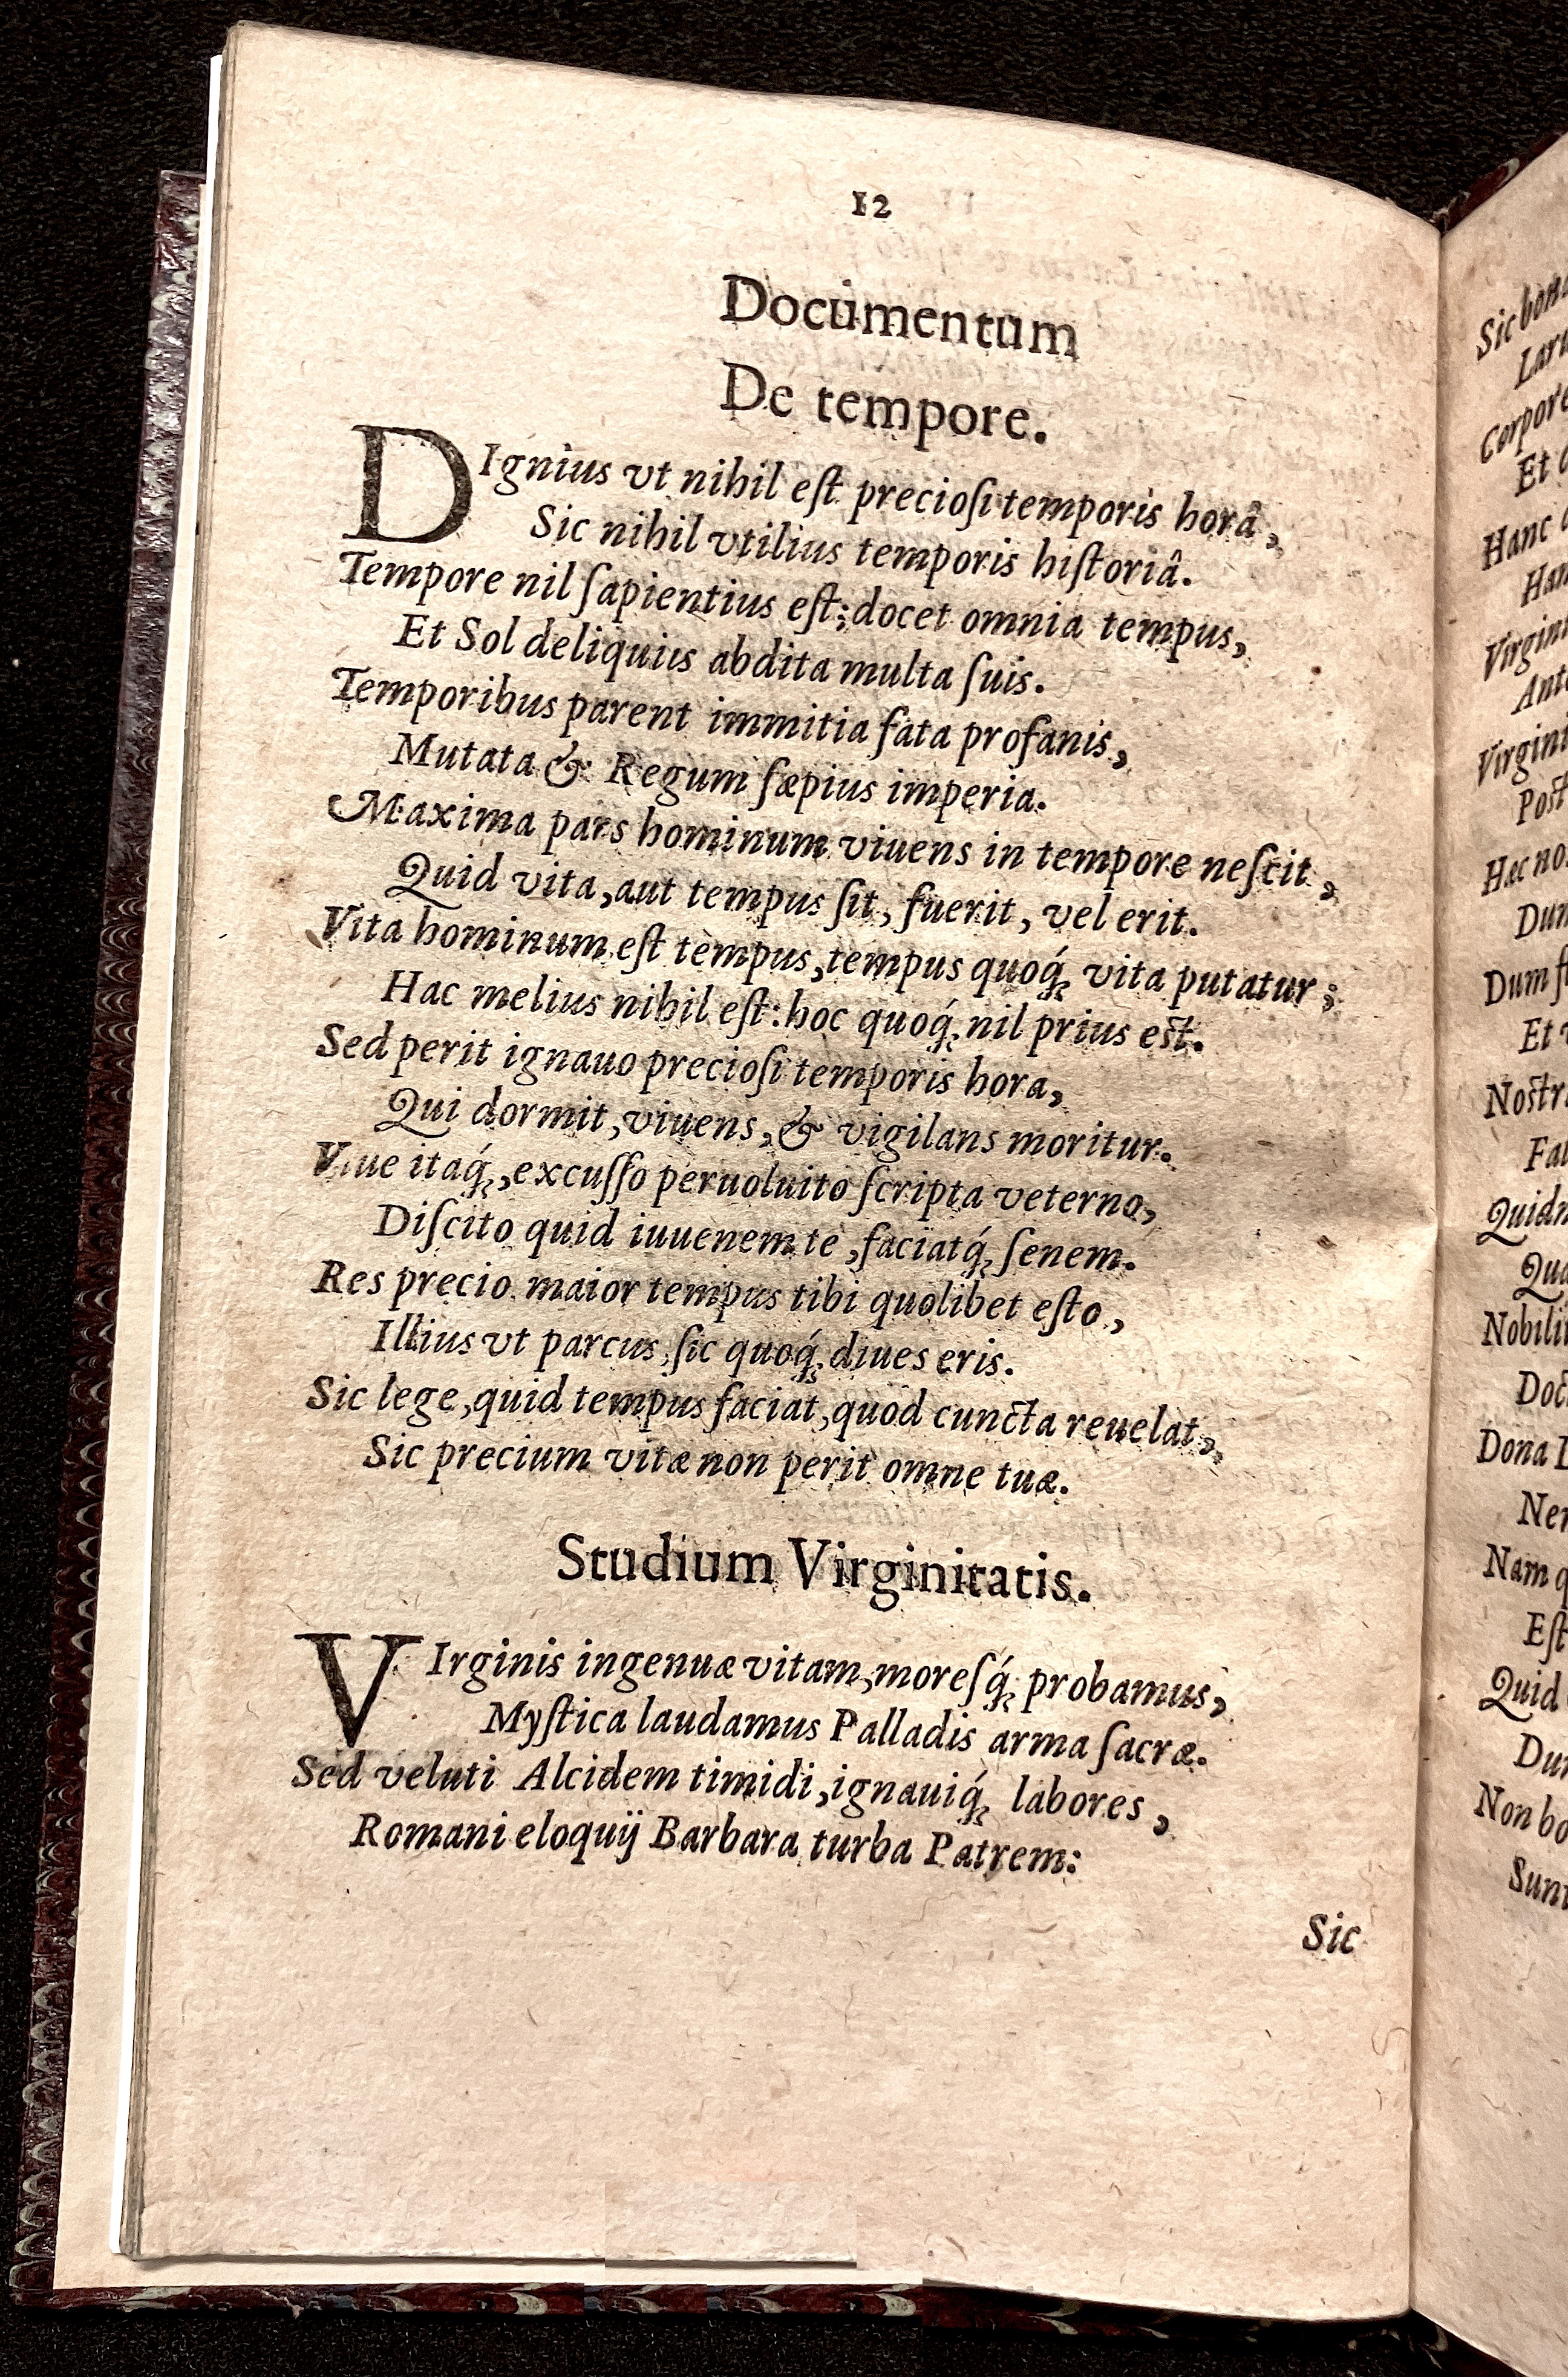 12
Documentum
De tempore.
DIgnius vt nihil eſt precioſi temporis horâ,
Sic nihil vtilius temporis hiſtoriâ.
Tempore nil ſapientius eſt; docet omnia tempus,
Et Sol deliquiis abdita multa ſuis.
Temporibus parent immitia fata profanis,
Mutata & Regum ſæpius imperia.
Maxima pars hominum viuens in tempore neſcit,
Quid vita, aut tempus ſit, fuerit, vel erit.
Vita hominum eſt tempus, tempus quoq́; vita putatur;
Hac melius nihil eſt: hoc quoq́; nil prius eſt.
Sed perit ignauo precioſi temporis hora,
Qui dormit, viuens, & vigilans moritur.
Viue itaq́;, excuſſo peruoluito ſcripta veterno,
Diſcito quid iuuenem te, faciatq́; ſenem.
Res precio maior tempus tibi quolibet eſto,
Illius vt parcus, ſic quoq́; diues eris.
Sic lege, quid tempus faciat, quod cuncta reuelat,
Sic precium vitæ non perit omne tuæ.
Studium Virginitatis.
VIrginis ingenuæ vitam, moreſq́; probamus,
Myſtica laudamus Palladis arma ſacræ.
Sed veluti Alcidem timidi, ignauiq́; labores,
Romani eloquij Barbara turba Patrem:
Sic
Sic
Corpore
Et
Hanc
Post
Hac
Dum
Et
Quid
Nobili
Dona
Nam
Eſt
Quid
Non